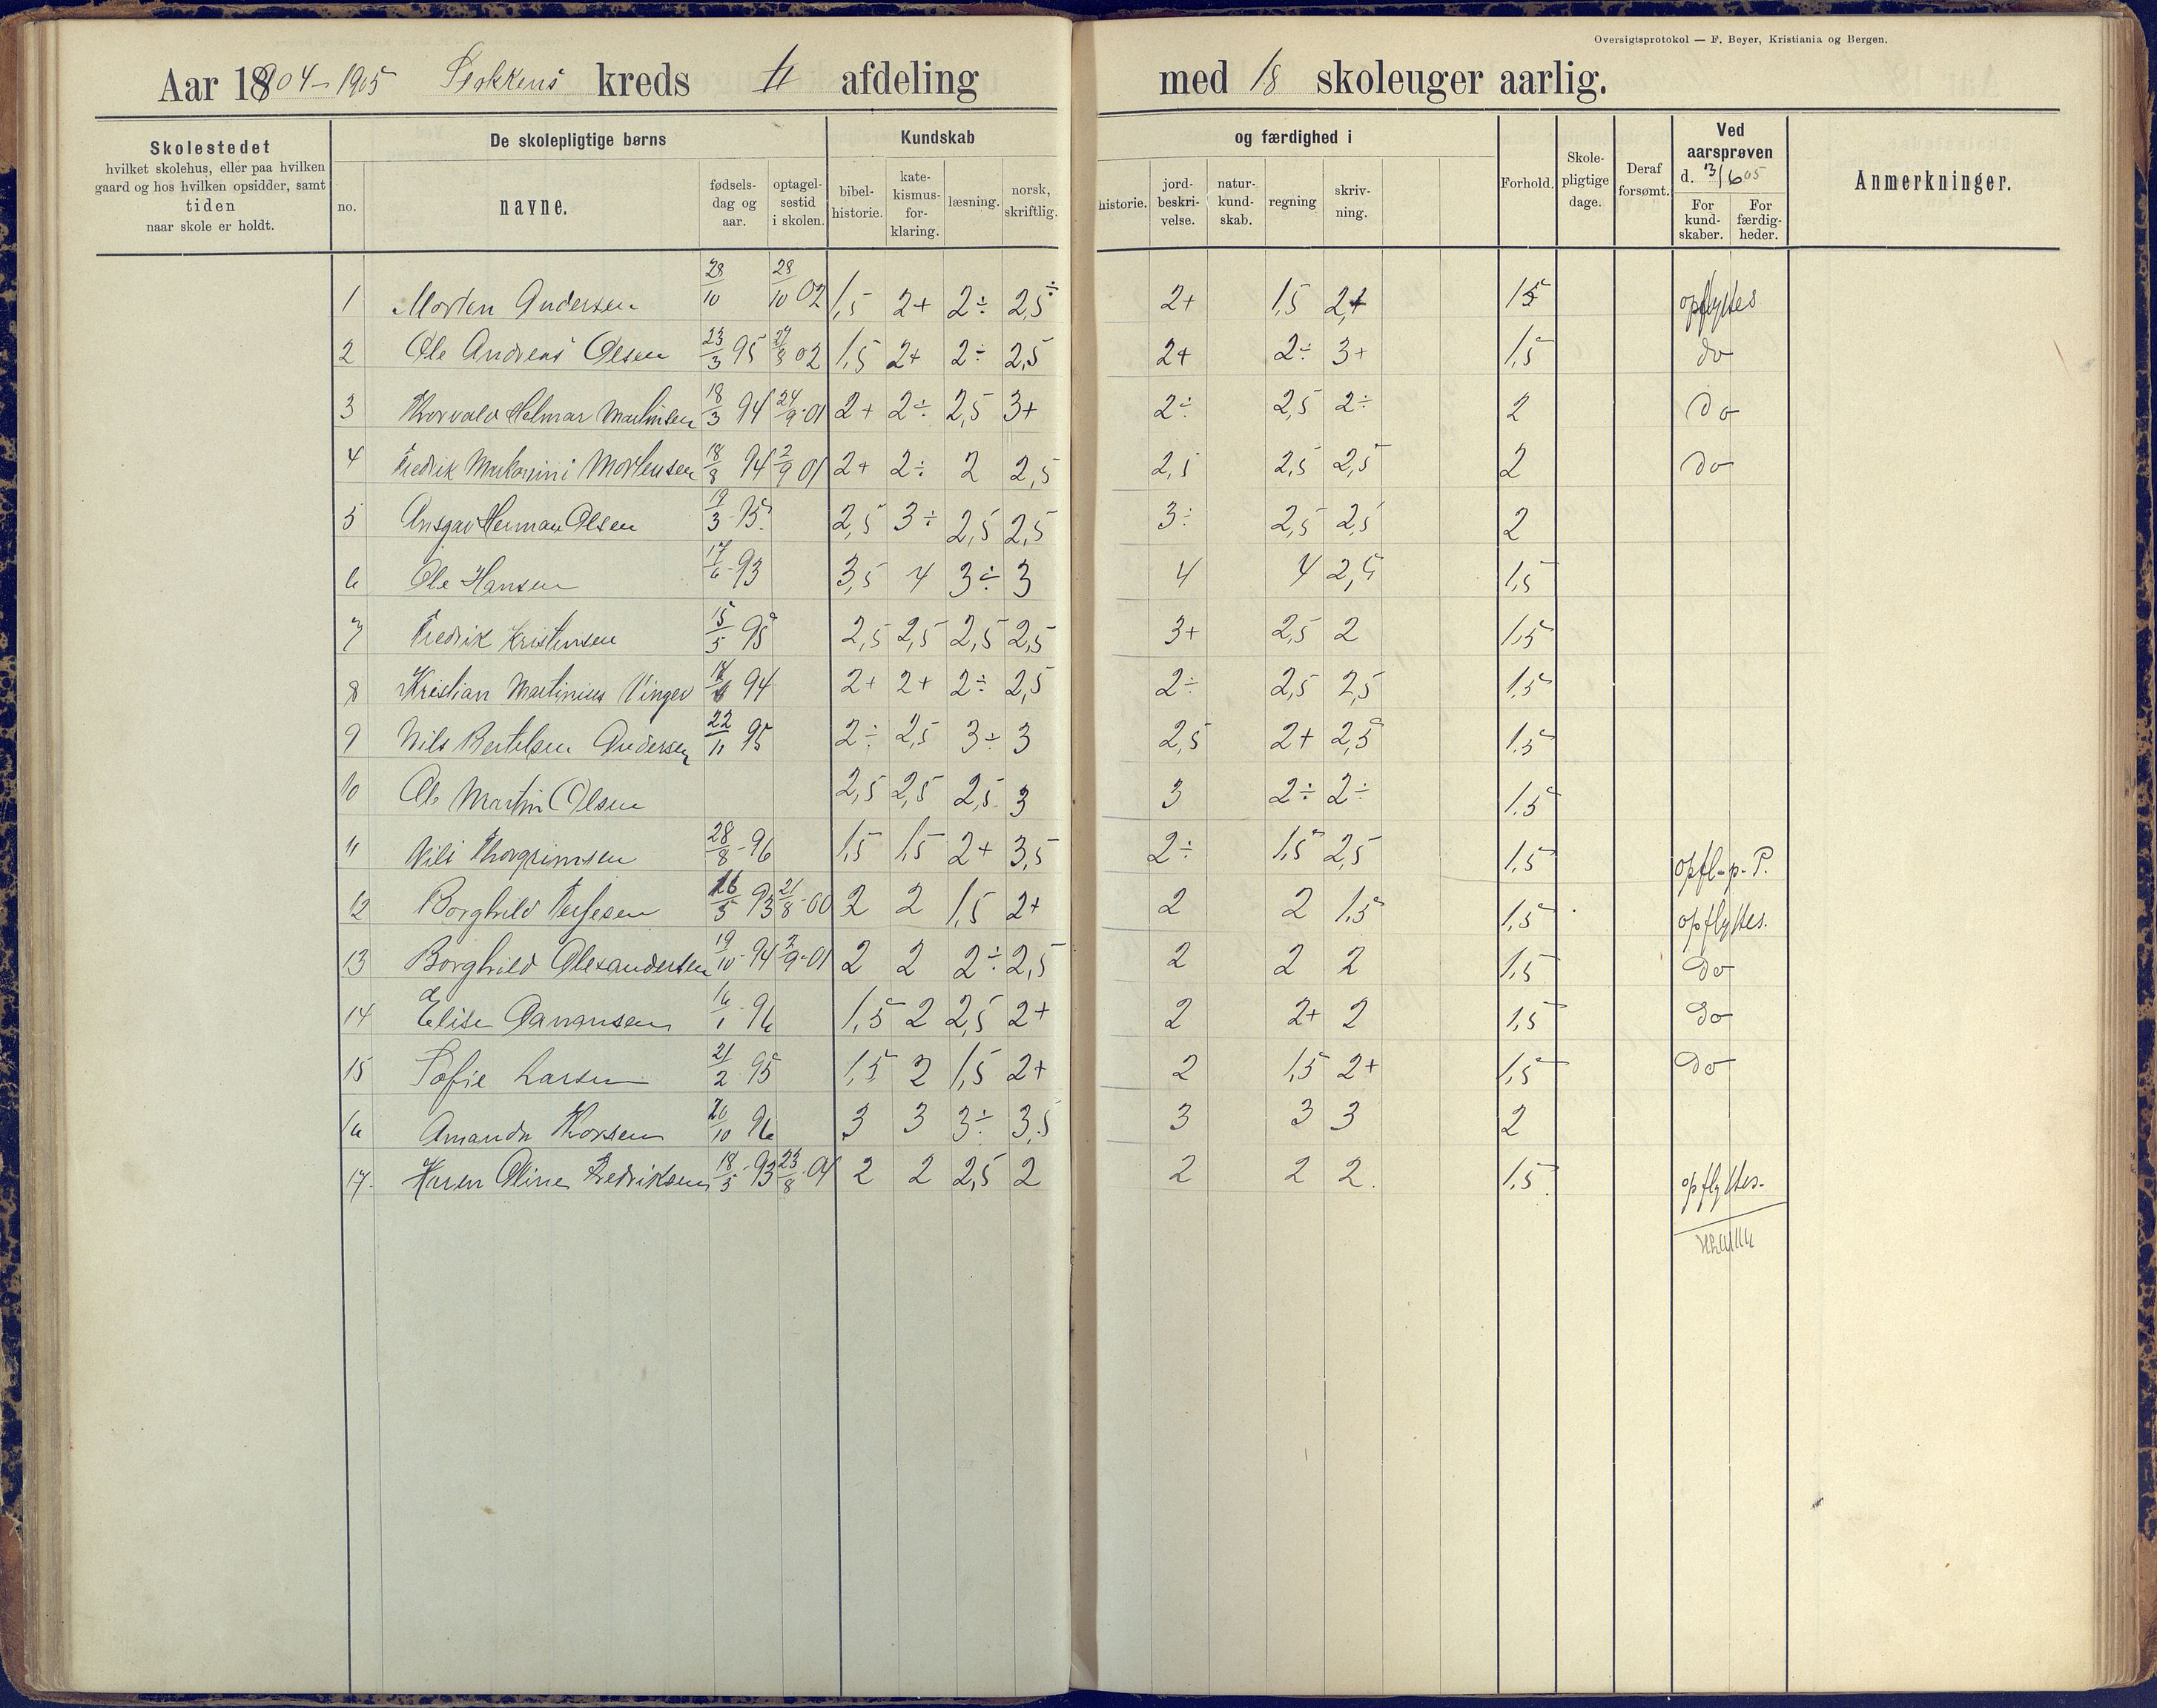 Oversigtsprotokol — F. Beyer, Kristiania og Bergen.
Aar 1904-1905 Stokkens kreds II afdeling med 18 skoleuger aarlig.
Skolestedet hvilket skolehus, eller paa hvilken gaard og hos hvilken opsidder, samt tiden naar skole er holdt.
De skolepligtige børns
Kundskab og færdighed i
no. navne. fødsels-dag og aar. optagel-sestid i skolen. bibel-historie. kate-kismus-for-klaring. læsning. norsk, skriftlig. historie. jord-beskri-velse. natur-kund-skab. regning skriv-ning. Forhold. Skole-pligtige dage. Deraf forsømt. Ved aarsprøven d. 3/6 05 For kund-skaber. For færdig-heder. Anmerkninger.
1 Morten Andersen 28/10 28/10 02 1,5 2+ 2÷ 2,5÷ 2+ 1,5 2+ 1,5 opflyttes
2 Ole Andreas Olsen 23/3 95 27/8 02 1,5 2+ 2÷ 2,5 2+ 2÷ 3+ 1,5 do
3 Thorvald Helmar Martinsen 18/3 94 24/9-01 2+ 2÷ 2,5 3+ 2÷ 2,5 2÷ 2 do
4 Fredrik Mortensen 18/8 94 2/9 01 2+ 2÷ 2 2,5 2,5 2,5 2,5 2 do
5 Ansgar Herman Olsen 19/3-95. 2,5 3÷ 2,5 2,5 3÷ 2,5 2,5 2
6 Ole Hansen 17/6-93 3,5 4 3÷ 3 4 4 2,5 1,5
7 Fredrik Kristensen 15/5 95 2,5 2,5 2,5 2,5 3+ 2,5 2 1,5
8 Kristian Martinius Vinger 94 2+ 2+ 2÷ 2,5 2÷ 2,5 2,5 1,5
9 Nils Bertelsen Andersen 22/11 95 2÷ 2,5 3÷ 3 2,5 2+ 2,5 1,5
10 Ole Martin Olsen 2,5 2,5 2,5 3 3 2÷ 2÷ 1,5
11 Nils Thorgrimsen 28/8-96 1,5 1,5 2+ 3,5 2÷ 1,5 2,5 1,5 opfl-p-P.
12 Borghild Terjesen 26/5 93 21/8-00 2 2 1,5 2+ 2 2 1,5 1,5 opflyttes.
13 Borghild Alexandersen 19/10-94 2/9-01 2 2 2÷ 2,5 2 2 2 1,5 do
14 Elise Aanonsen 16/1-96 1,5 2 2,5 2+ 2 2+ 2 1,5 do
15 Sofie Larsen 21/2 95 1,5 2 1,5 2+ 2 1,5 2+ 1,5 do
16 Amanda Thorsen 20/10 96 3 3 3÷ 3,5 3 3 3 2
17. Karen Oline Fredriksen 18/5-93 23/8-01 2 2 2,5 2 2 2 2. 1,5. opflyttes.